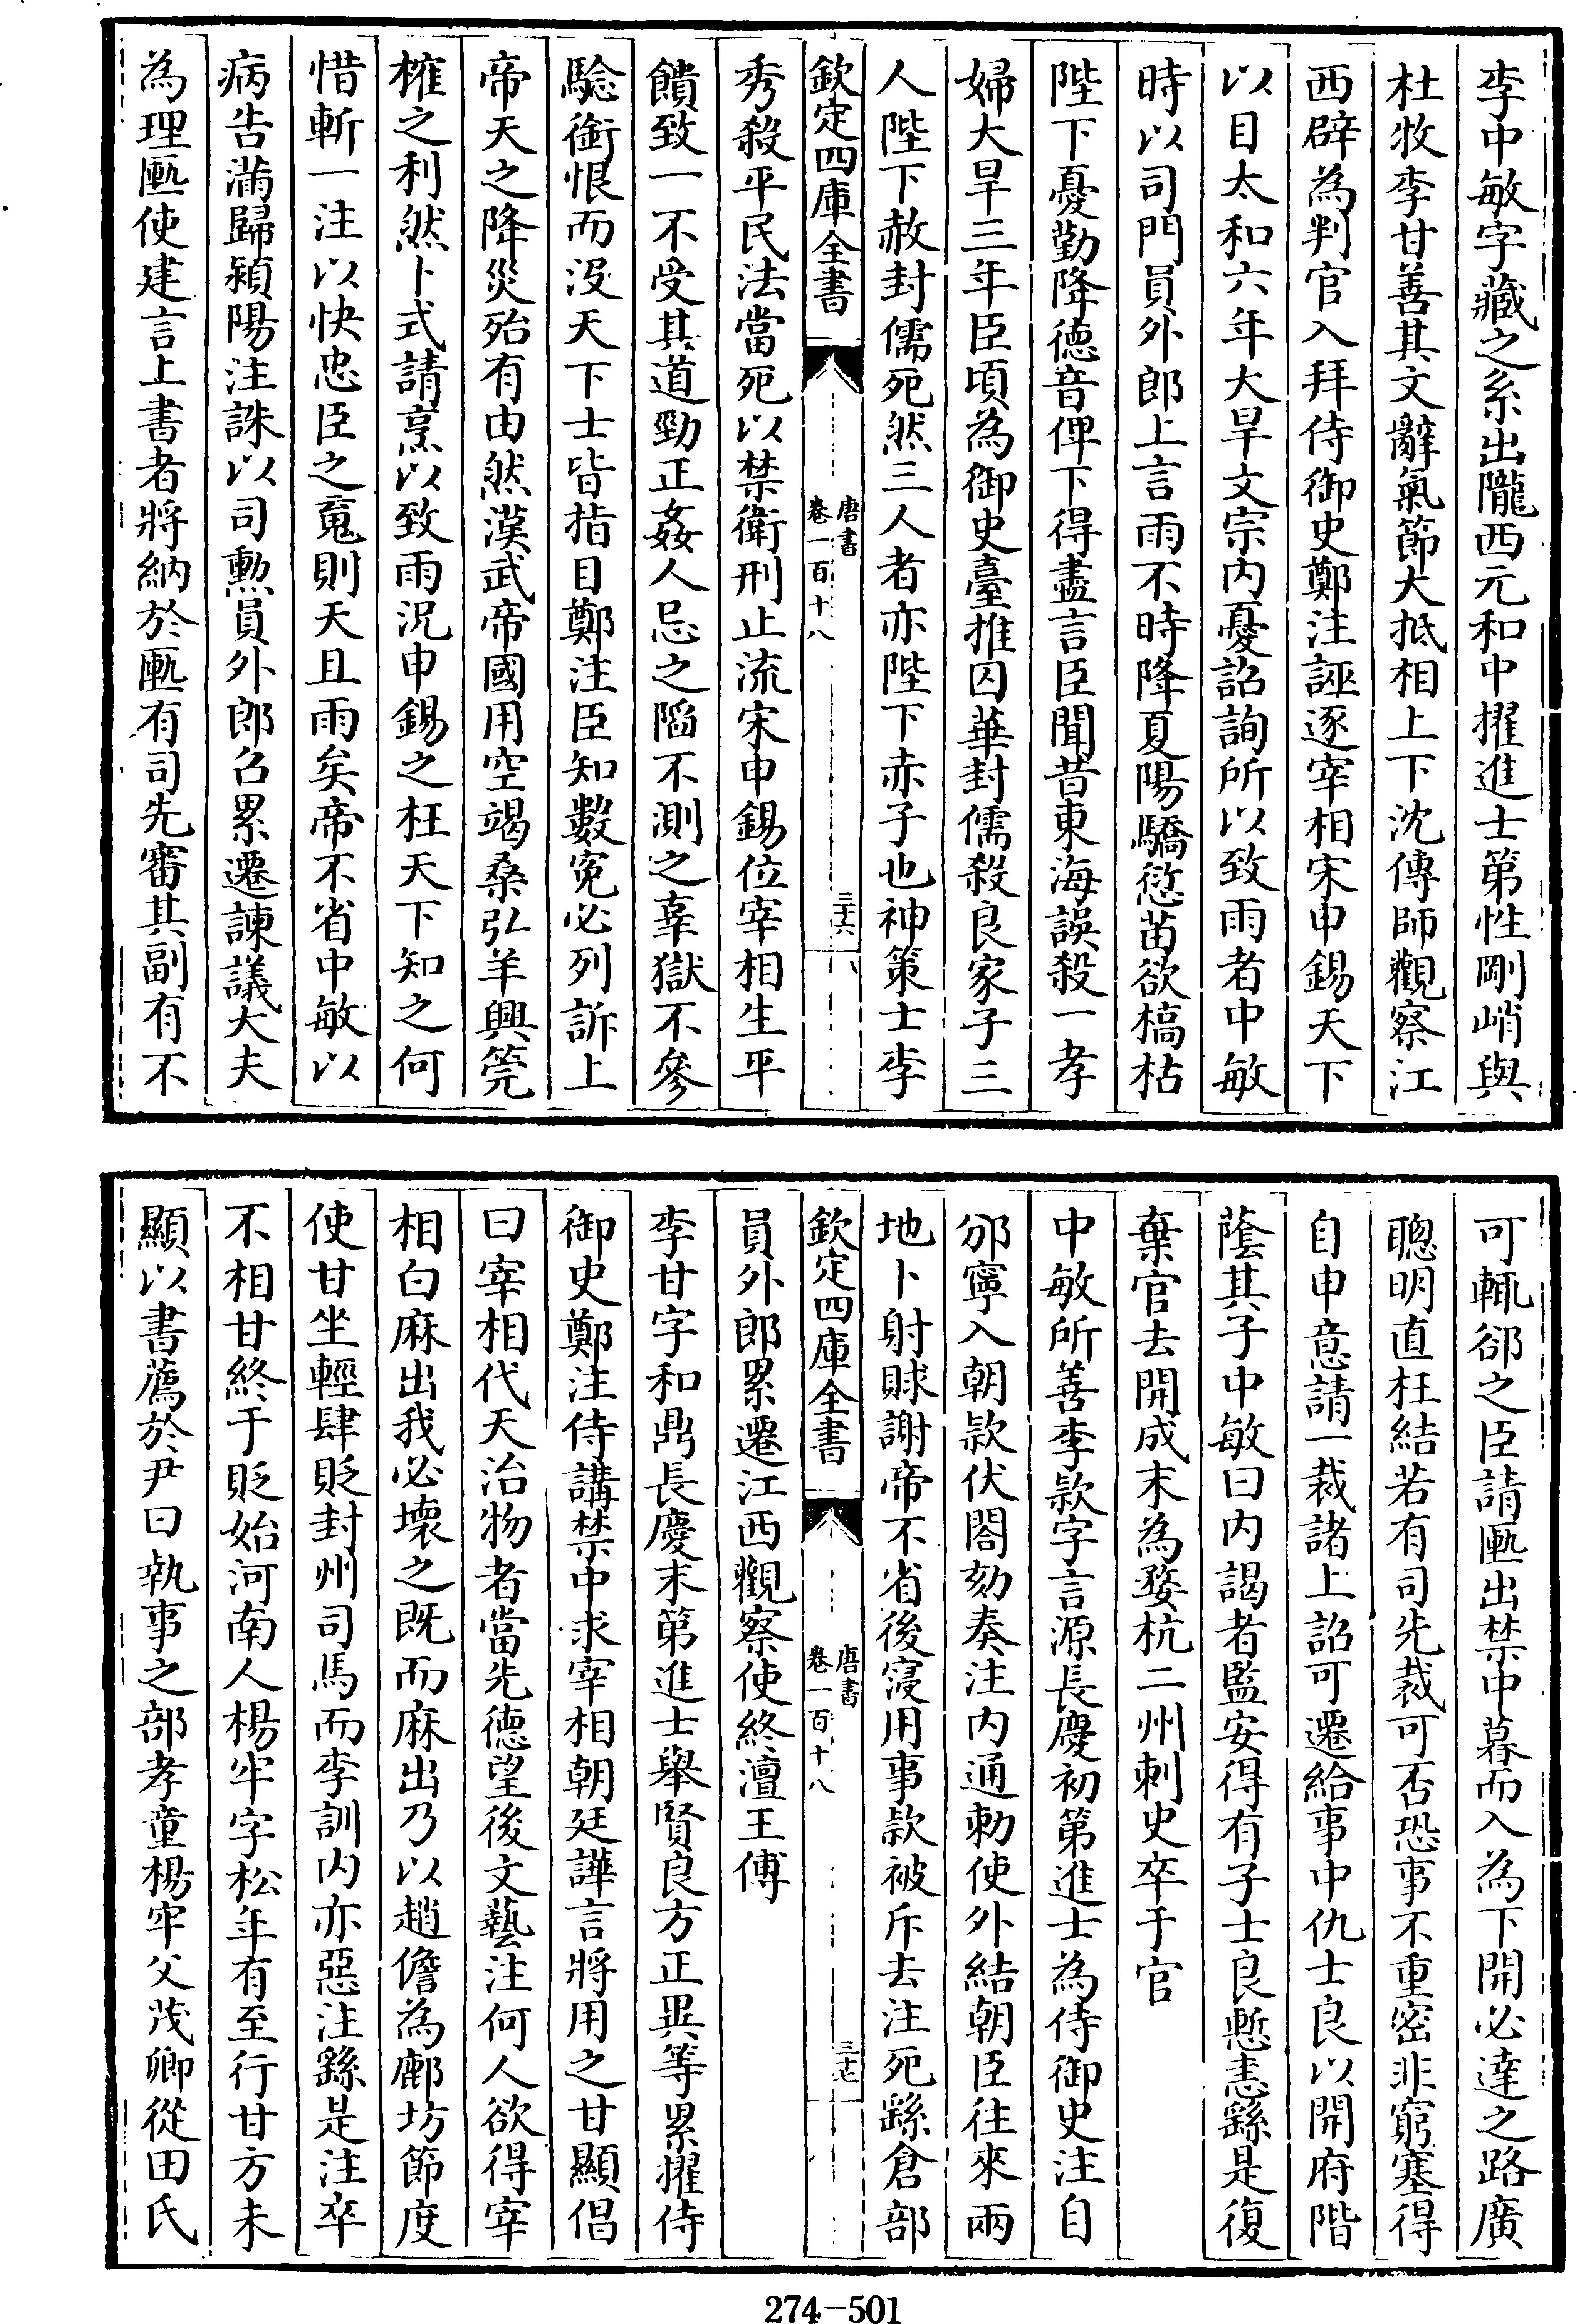 李中敏字藏之系出隴西元和中擢進士第性剛峭與
杜牧李甘善其文辭氣節大抵相上下沈傳師觀察江
西辟為判官入拜侍御史鄭注誣逐宰相宋申錫天下
以目太和六年大旱文宗内憂詔詢所以致雨者中敏
時以司門員外郎上言雨不時降夏陽驕愆苗欲槁枯
陛下憂勤降德音俾下得盡言臣聞昔東海誤殺一孝
婦大旱三年臣頃為御史臺推囚華封儒殺良家子三
人陛下赦封儒死然三人者亦陛下赤子也神策士李
欽定四庫全書
唐書
卷一百十八
三十六
秀殺平民法當死以禁衛刑止流宋申錫位宰相生平
饋致一不受其道勁正姦人忌之陷不測之辜獄不參
驗銜恨而沒天下士皆指目鄭注臣知數寃必列訴上
帝天之降災殆有由然漢武帝國用空竭桑弘羊興筦
榷之利然卜式請烹以致雨況申錫之枉天下知之何
惜斬一注以快忠臣之䰟則天且雨矣帝不省中敏以
病告滿歸潁陽注誅以司勲員外郎召累遷諫議大夫
為理匭使建言上書者將納於匭有司先審其副有不
可輒郤之臣請匭出禁中暮而入為下開必達之路廣
聰明直枉結若有司先裁可否恐事不重密非窮塞得
自申意請一裁諸上詔可遷給事中仇士良以開府階
蔭其子中敏曰内謁者監安得有子士良慙恚繇是復
棄官去開成末為婺杭二州刺史卒于官
中敏所善李款字言源長慶初第進士為侍御史注自
邠寧入朝款伏閤劾奏注内通勅使外結朝臣往來兩
地卜射賕謝帝不省後寖用事款被斥去注死繇倉部
欽定四庫全書
唐書
卷一百十八
三十七
員外郎累遷江西觀察使終澶王傅
李甘字和鼎長慶末第進士舉賢良方正異等累擢侍
御史鄭注侍講禁中求宰相朝廷譁言將用之甘顯倡
曰宰相代天治物者當先德望後文藝注何人欲得宰
相白麻出我必壞之既而麻出乃以趙儋為鄜坊節度
使甘坐輕肆貶封州司馬而李訓内亦惡注繇是注卒
不相甘終于貶始河南人楊牢字松年有至行甘方未
顯以書薦於尹曰執事之部孝童楊牢父茂卿從田氏
274-501